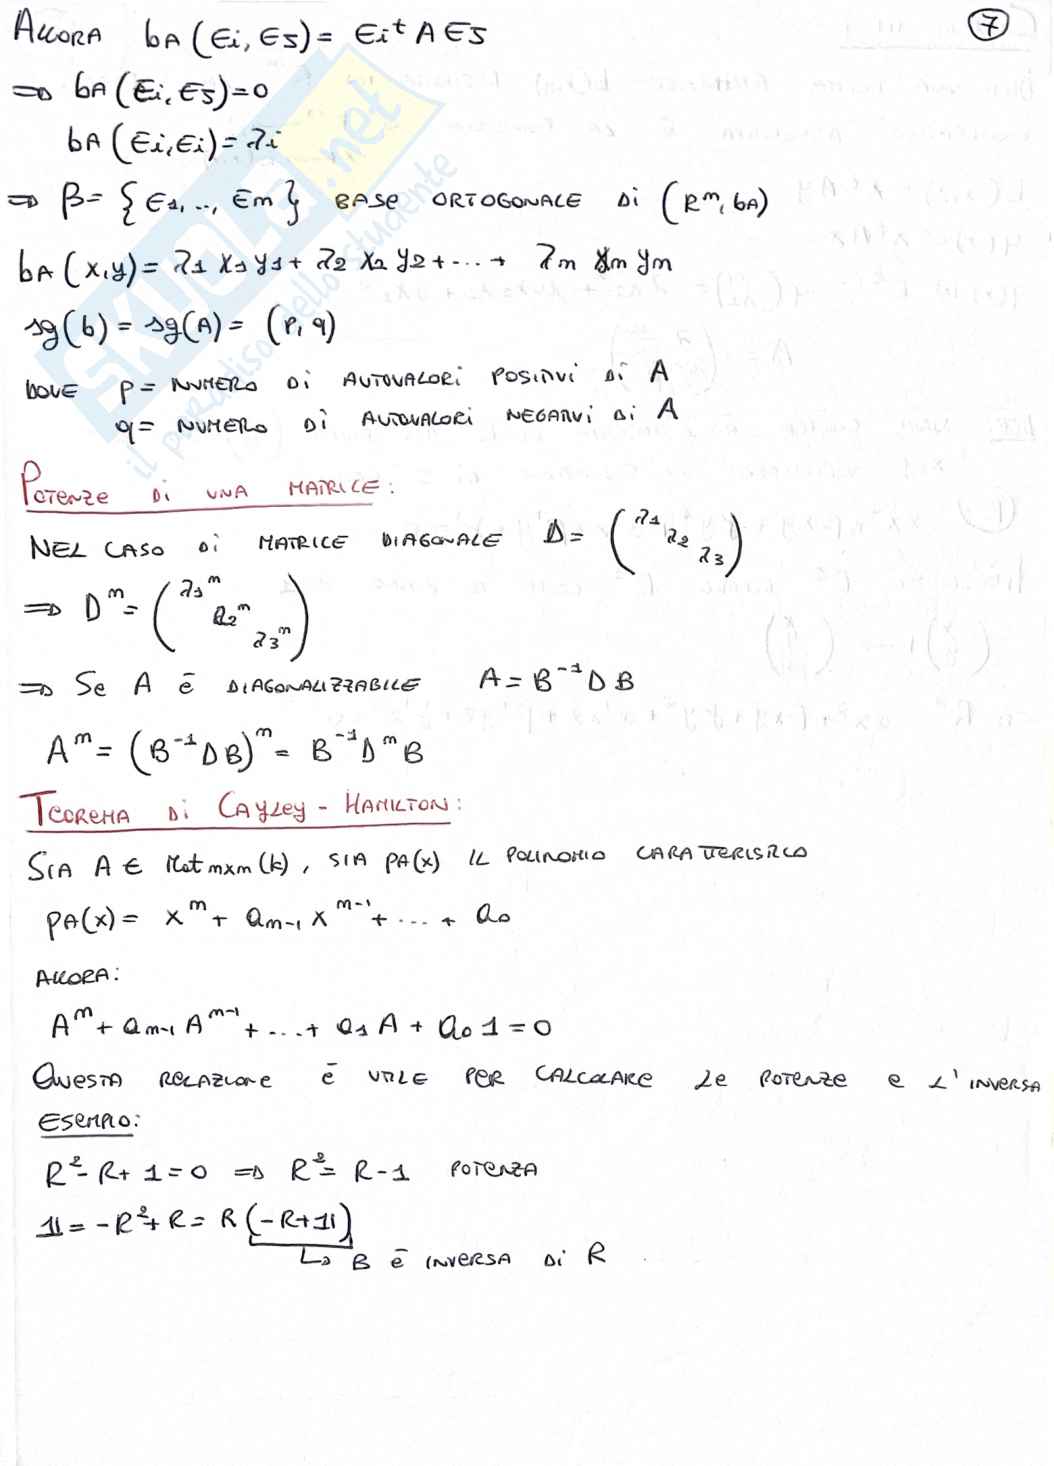 7
ALLORA bA(Ei, EJ) = Ei^t A EJ
⇒ bA(Ei, EJ) = 0
bA(Ei, Ei) = λi
⇒ β = {E1, .., Em} BASE ORTOGONALE Di (R^m, bA)
bA(x,y) = λ1 x1 y1 + λ2 x2 y2 + ... + λm xm ym
sg(b) = sg(A) = (p, q)
DOVE p = NUMERO Di AUTOVALORi POSITIVi Di A
q = NUMERO Di AUTOVALORi NEGATIVi Di A
POTENZE Di UNA MATRICE:
NEL CASO Di MATRICE DIAGONALE D = (λ1 λ2 λ3)
⇒ D^m = (λ1^m λ2^m λ3^m)
⇒ Se A è DIAGONALIZZABILE A = B^-1 D B
A^m = (B^-1 D B)^m = B^-1 D^m B
TEOREMA Di CAYLEY - HAMILTON:
SIA A ∈ Mat mxm (k), SIA pA(x) IL POLINOMIO CARATTERISTICO
pA(x) = x^m + am-1 x^m-1 + ... + a0
ALLORA:
A^m + am-1 A^m-1 + ... + a1 A + a0 1 = 0
QUESTA RELAZIONE è UTILE PER CALCOLARE Le POTENZE e L'INVERSA
ESEMPIO:
R^2 - R + 1 = 0 ⇒ R^2 = R - 1 POTENZA
1l = -R^2 + R = R (-R + 1l)
↳ B è INVERSA Di R
SKUOLA.net
il paradiso dello studente